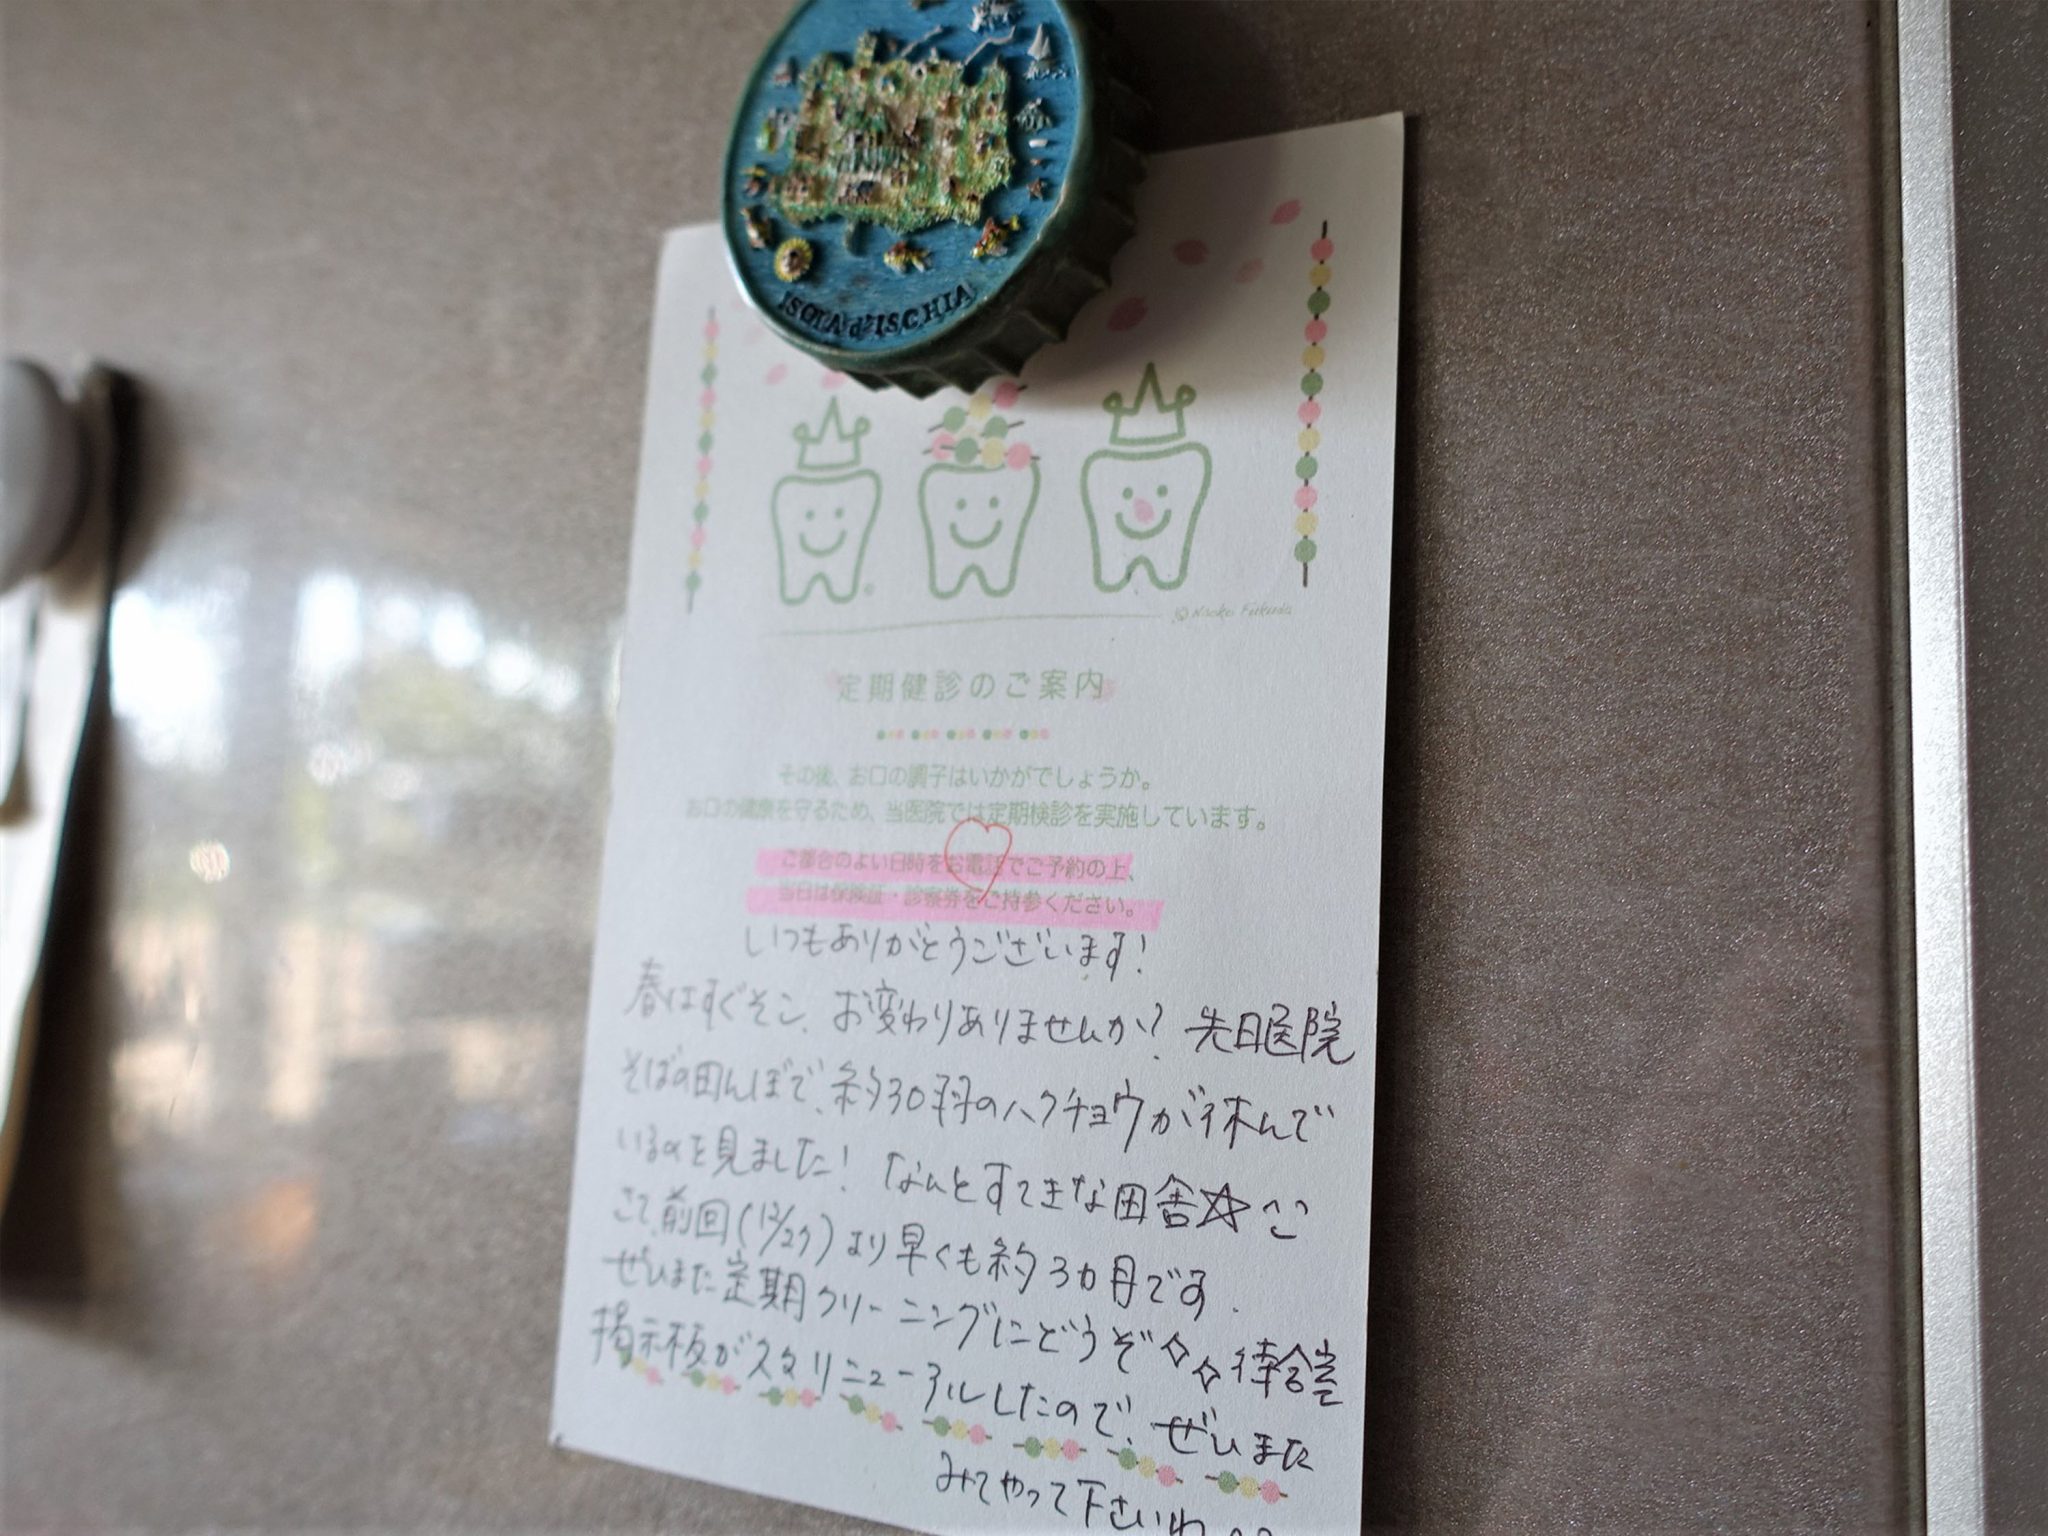 ISOLA d'ISCHIA
© Naoko Fukuda
定期健診のご案内
その後、お口の調子はいかがでしょうか。
お口の健康を守るため、当医院では定期検診を実施しています。
ご都合のよい日時をお電話でご予約の上、
当日は保険証・診察券をご持参ください。
いつもありがとうございます!
春はすぐそこ、お変わりありませんか? 先日医院
そばの田んぼで、約30羽のハクチョウが休んで
いるのを見ました! なんとすてきな田舎☆
さて、前回(12/27)より早くも約3カ月です.
ぜひまた定期クリーニングにどうぞ✧✧ 待合室
掲示板がスタリニューアルしたので、ぜひまた
みてやって下さいね